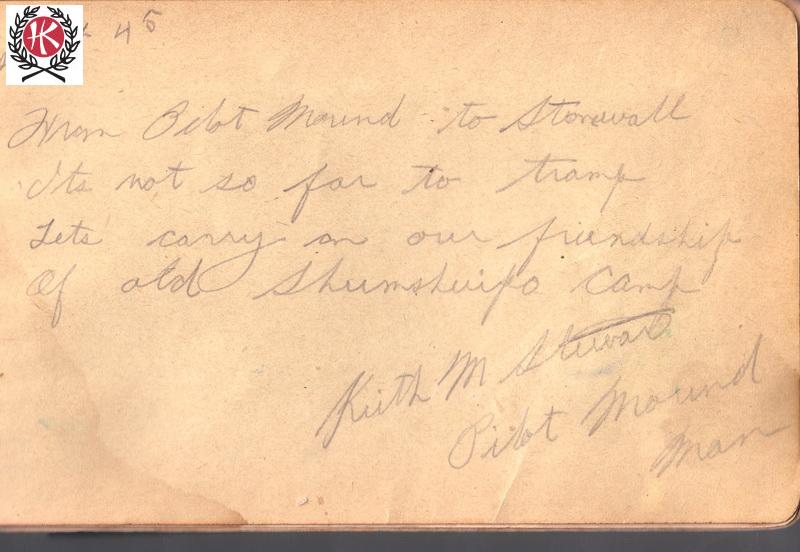 HK
45
From Pilot Mound to Stonewall
Its not so far to tramp
Lets carry on our friendship
Of old Shumshuipo Camp
Keith M Stewart
Pilot Mound
Man